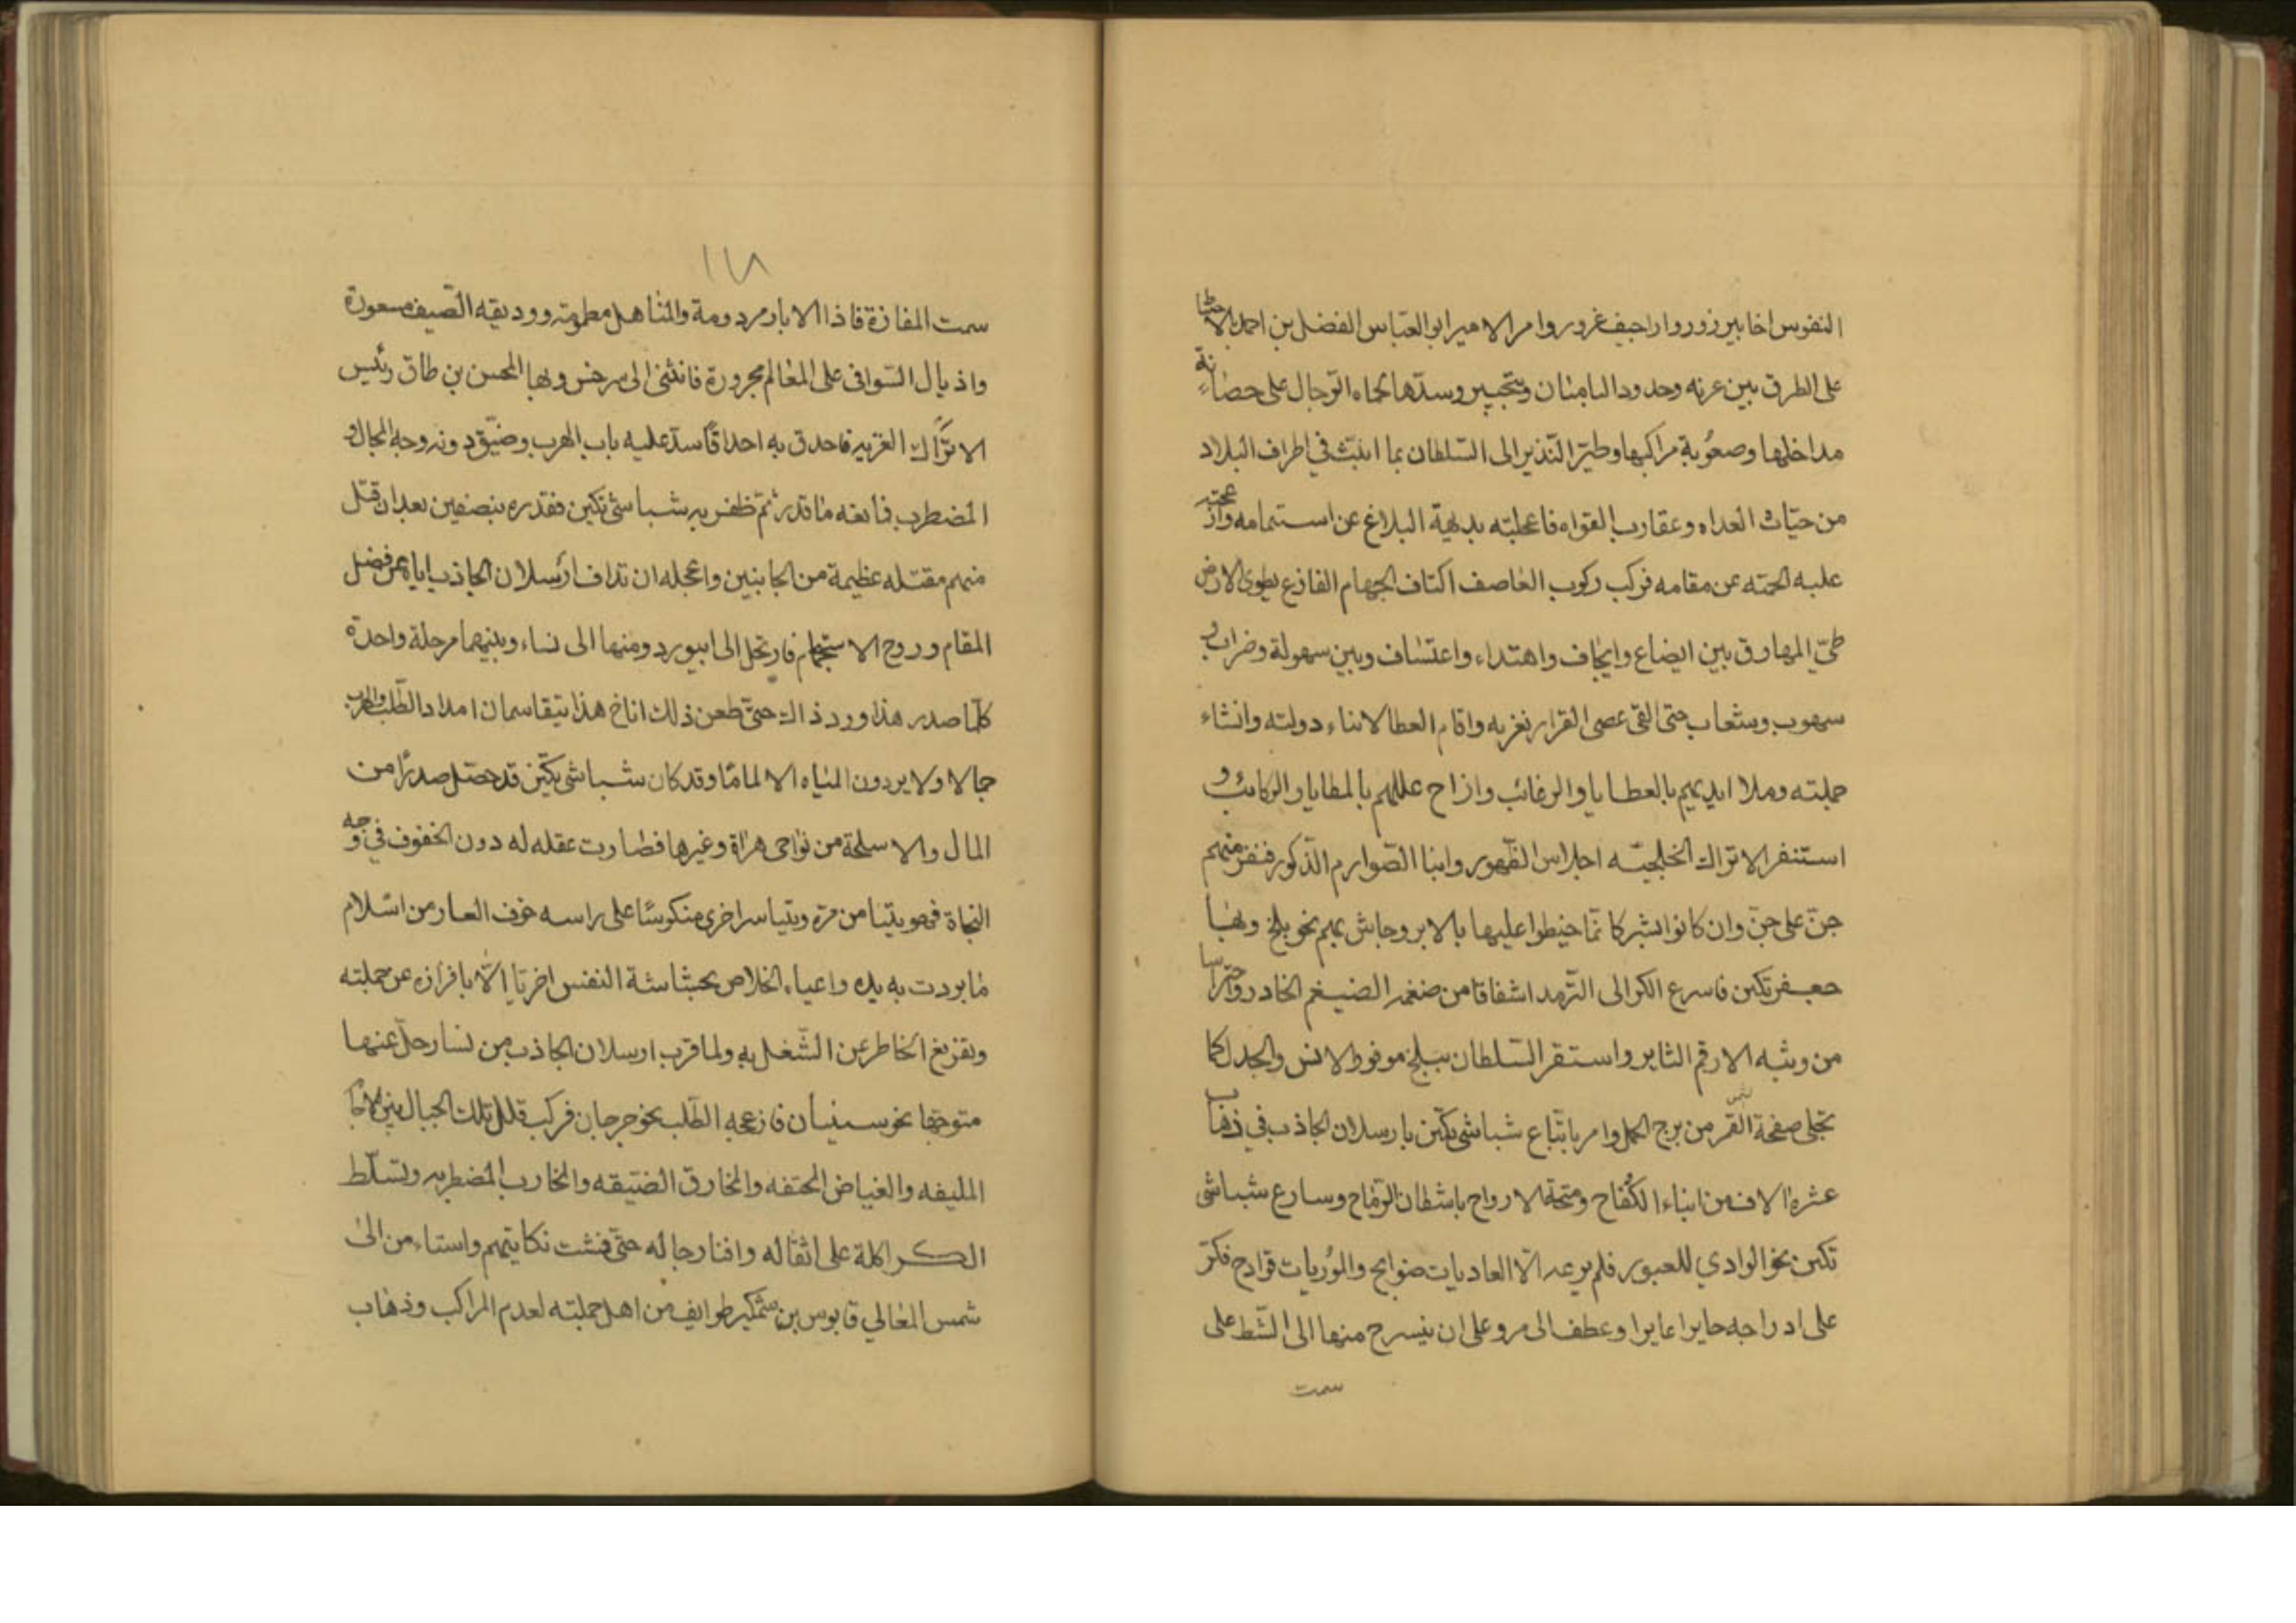 النفوس اخابير زور واراجيف غرور وامر الامير ابو العباس الفضل بن احمد بالاحتيا
على الطرق بين غزنه وحدود الباميان وپنجهير وسدها بكماه الرجال على حصانة
مداخلها وصعوبة مراكبها وطير النذير الى السلطان بما انبث في اطراف البلاد
من حيات العداه وعقارب الغواه فاعجلته بديهة البلاغ عن استتمامه وازعجته
عليه الحمته عن مقامه فركب ركوب العاصف اكتاف الجهام الفازع يطوى الارض
طىّ المهارق بين ايضاع وايجاف واهتداء واعتساف وبين سهولة وضراب و
سهوب وشعاب حتى القى عصى القرار بغزنه واقام العطا لابناء دولته وانشاء
جملته وملا ايديهم بالعطايا والرغائب وازاح عللهم بالمطايا والركائب و
استنفر الاتراك الخلجيّه احلاس الظهور وابنا الصوارم الذكور فنفر منهم
جنّ على جنّ وان كانوا بشر كانّما خيطوا عليها بالابر وجاش بهم نحو بلخ وبها
جعفر تكين فاسرع الكر الى الترمد اشفاقا من ضغمه الضيغم الخادر واحتراسا
من وثبه الارقم الثاير واستقر السلطان ببلخ موفور الانس والجدل كما
تجلى صفحة القمر من برج الحمل وامر باتباع شباشى تكين بارسلان الجاذب في ذهاب
عشرة الاف من ابناء الكفاح ومتحة الارواح باشطان الرماح وسارع شباشى
تكين نحو الوادي للعبور فلم يرعه الّا العاديات ضوابح والموريات قوادح فكرّ
على ادراجه حايرا عايرا وعطف الى مرو على ان ينسرح منها الى الشط على
سمت
١١٨
سمت المفازة فاذا الابار مردومة والمناهل مطمومة ووديقه الصيف مسعورة
واذيال السوافى على المعالم مجرورة فانثنى الى سرخس وبها المحسن بن طاق رئيس
الاتراك الغزيه فاحدق به احداقًا سدّ عليه باب الهرب وضيّق دونه وجه المجال و
المضطرب فمانعه ما قدر ثم ظفر به شباشى تكين فقدره بنصفين بعد ان قتل
منهم مقتله عظيمة من الجانبين واعجله ان تداف ارسلان الجاذب اياه عن فضل
المقام وروح الاستجمام فارتحل الى ابيورد ومنها الى نساء وبينهما مرحلة واحدة
كلّما صدر هذا ورد ذاك حتى ظعن ذلك اناخ هذا يتقاسمان امداد الطلب والهرب
حالا ولا يردون المياه الا لمامًا وقد كان شباشى تكين قد حصل صدرًا من
المال والاسلحة من نواحى هراة وغيرها فصارت عقله له دون الخفوف في وجه
النجاة فهو يتيامن مرة ويتياسر اخرى منكوسًا على راسه خوف العار من اسلام
ما بردت به يده واعياء الخلاص بحشاشة النفس اخرتا الّا بافرازه عن جملته
وتفريغ الخاطر عن الشغل به ولما قرب ارسلان الجاذب من نسا رحل عنها
متوجها نحو سمنيان فازعجه الطلب نحو جرجان فركب قلل تلك الجبال بين الاجا
المليفه والغياض الملتفه والمخارق الضيقه والمخارب المضطربه وتسلّط
الكراكلة على اثقاله وافنا رجاله حتى فشت نكايتهم واستاءمن الى
شمس المعالي قابوس بن وشمكير طوايف من اهل جملته لعدم المراكب وذهاب